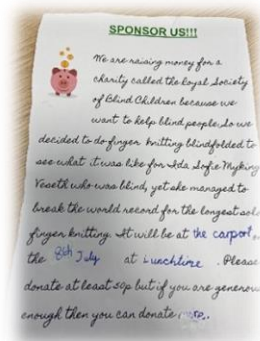 SPONSOR US!!!
We are raising money for a
charity called the Royal Society
of Blind Children because we
want to help blind people. So we
decided to do finger knitting blindfolded to
see what it was like for Ada Sofie Myking
Veseth who was blind, yet she managed to
break the world record for the longest solo
finger knitting. It will be at the carport on
the 8th July at Lunchtime. Please
donate at least 50p but if you are generous
enough then you can donate more.